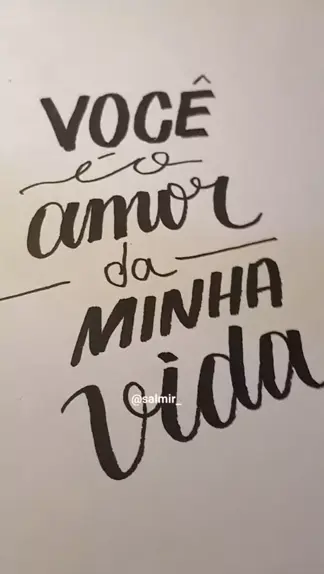 VOCÊ
é o
amor
da
MINHA
vida
@salmir_